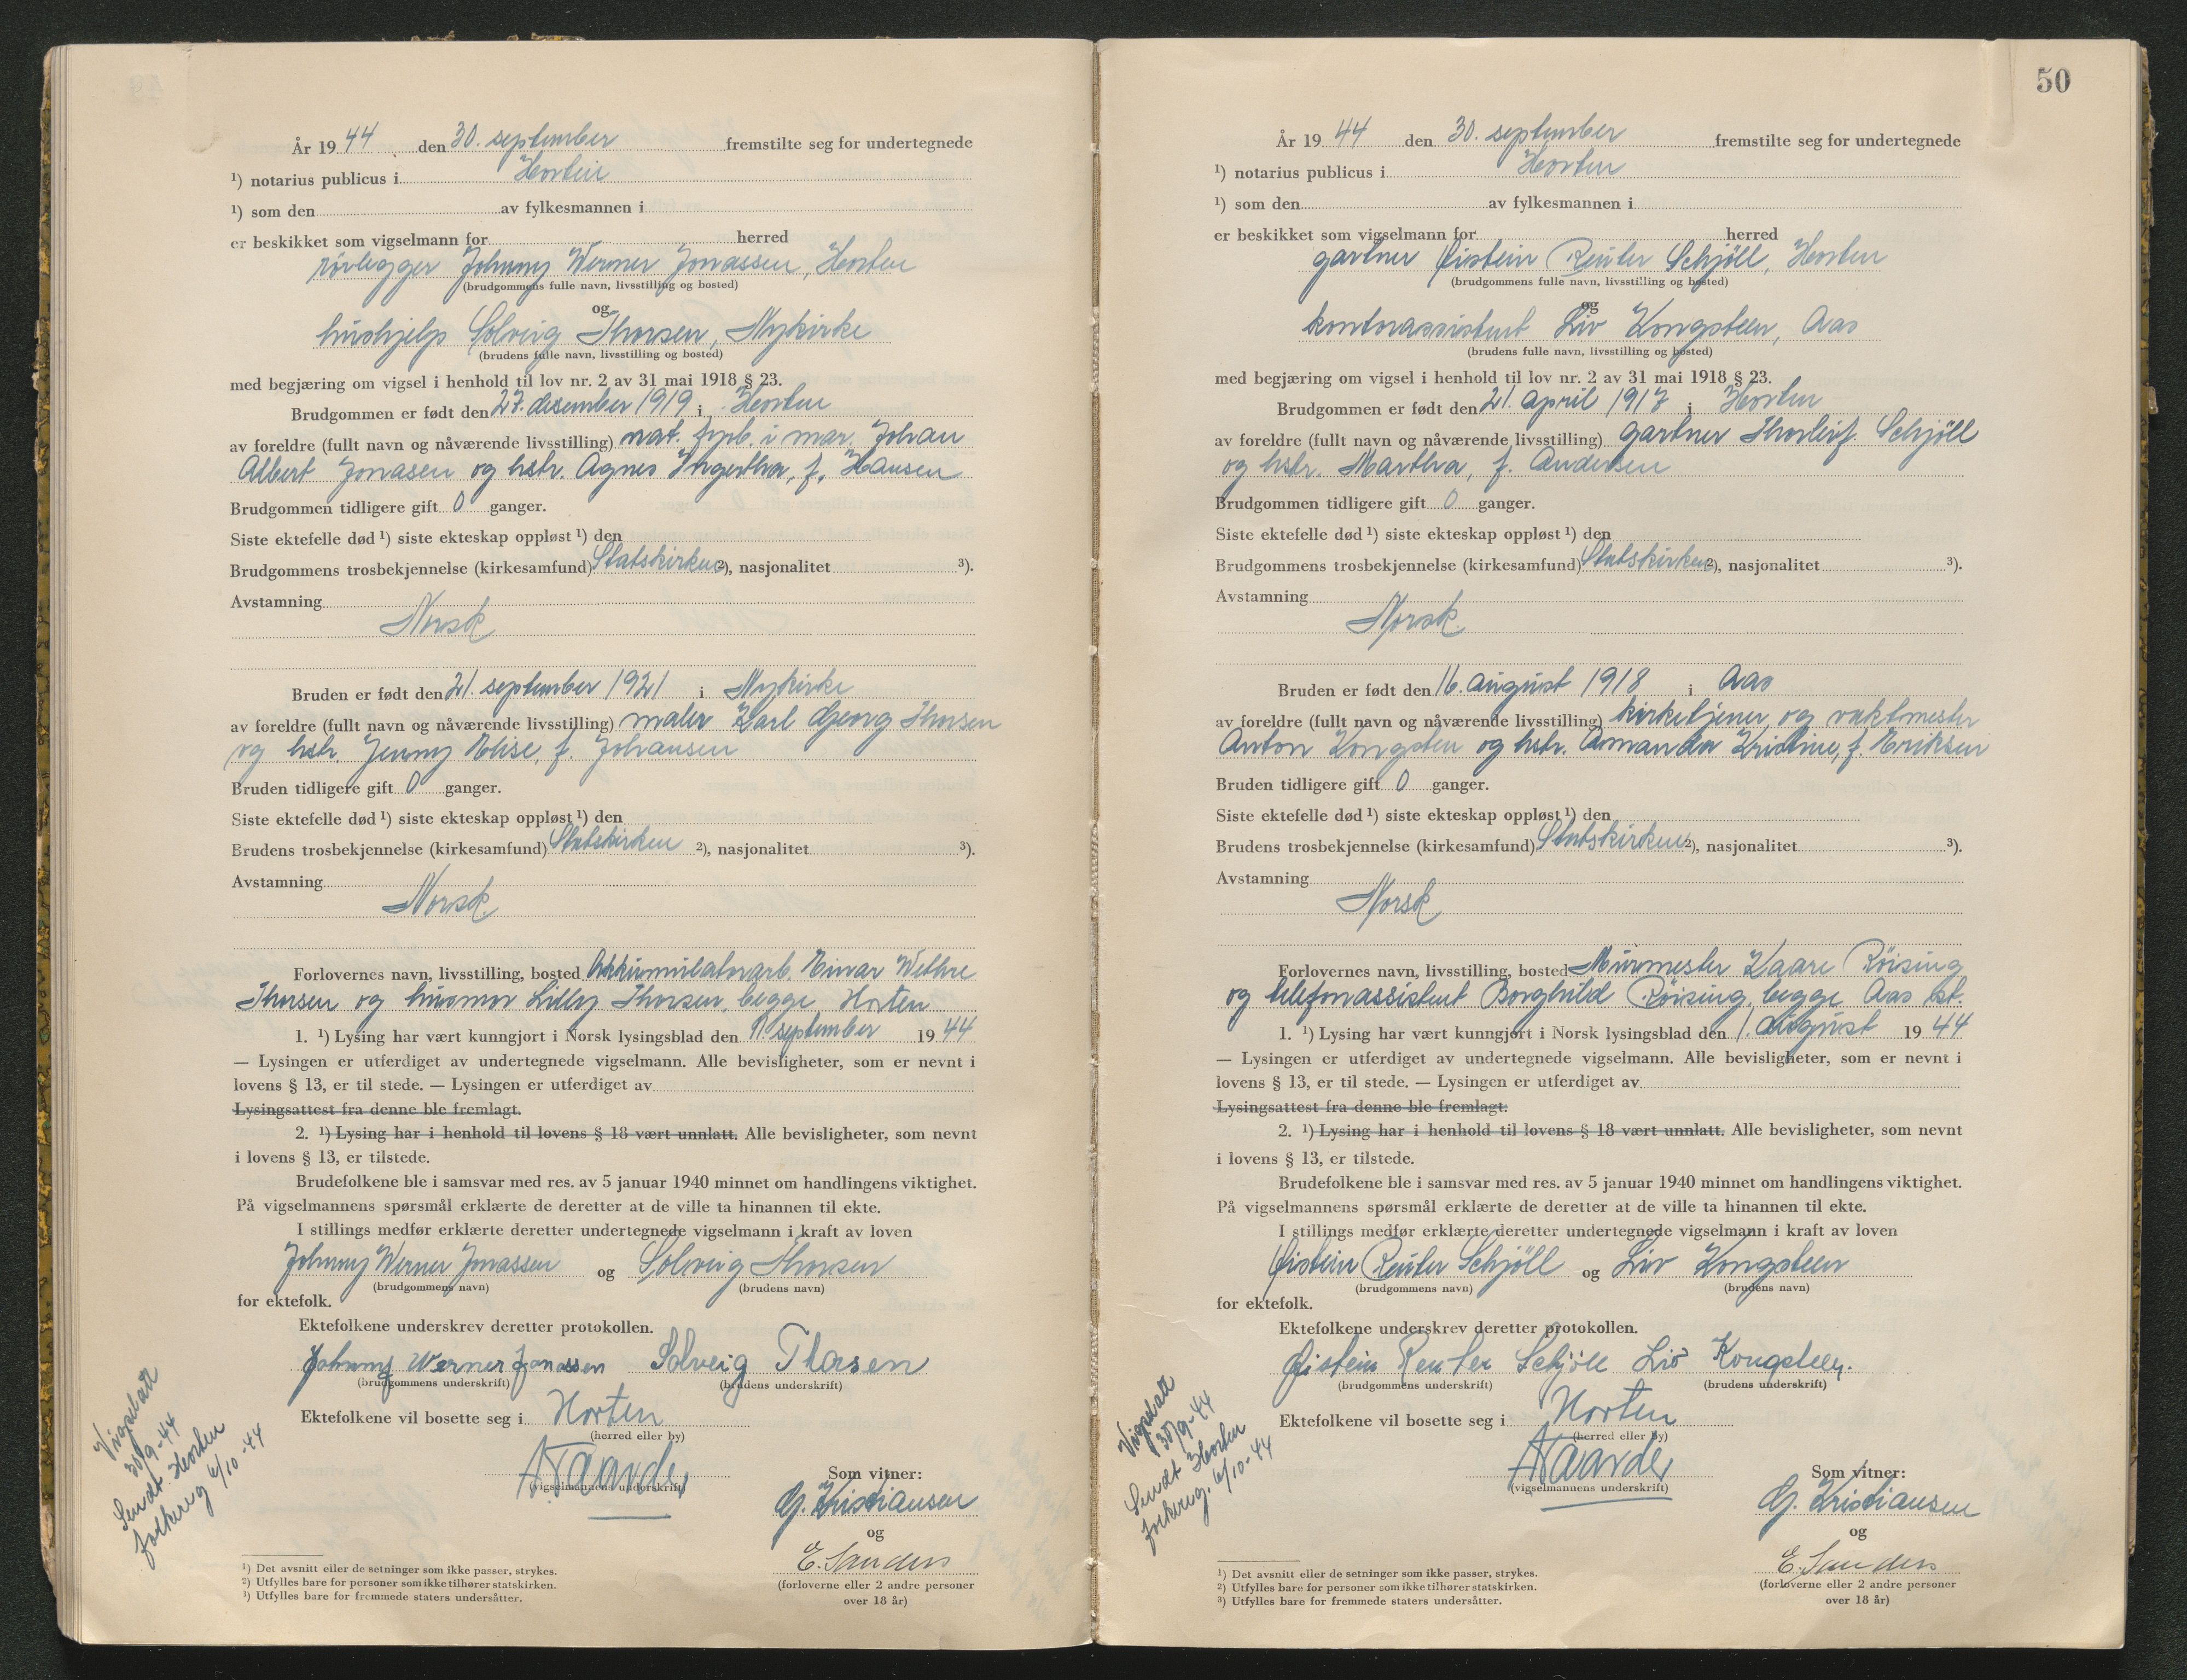 År 1944 den 30. september fremstilte seg for undertegnede
¹) notarius publicus i Horten
¹) som den av fylkesmannen i
er beskikket som vigselmann for herred
rørlegger Johnny Werner Jonassen, Horten
(brudgommens fulle navn, livsstilling og bosted)
og
hushjelp Solveig Thorsen, Nykirke
(brudens fulle navn, livsstilling og bosted)
med begjæring om vigsel i henhold til lov nr. 2 av 31 mai 1918 § 23.
Brudgommen er født den 27. desember 1919 i Horten
av foreldre (fullt navn og nåværende livsstilling) mat. forb. i mar. Johan
Albert Jonasen og hstr. Agnes Ingertha, f. Hansen
Brudgommen tidligere gift 0 ganger.
Siste ektefelle død ¹) siste ekteskap oppløst ¹) den
Brudgommens trosbekjennelse (kirkesamfund) Statskirken ²), nasjonalitet ³).
Avstamning
Norsk
Bruden er født den 21. september 1921 i Nykirke
av foreldre (fullt navn og nåværende livsstilling) maler Karl Georg Thorsen
og hstr. Jenny Elise, f. Johansen
Bruden tidligere gift 0 ganger.
Siste ektefelle død ¹) siste ekteskap oppløst ¹) den
Brudens trosbekjennelse (kirkesamfund) Statskirken ²), nasjonalitet ³).
Avstamning
Norsk.
Forlovernes navn, livsstilling, bosted Akkumulatorarb. Einar Wethre
Thorsen og husmor Lilly Thorsen, begge Horten
1. ¹) Lysing har vært kunngjort i Norsk lysingsblad den 9. september 1944
— Lysingen er utferdiget av undertegnede vigselmann. Alle bevisligheter, som er nevnt i
lovens § 13, er til stede. — Lysingen er utferdiget av
Lysingsattest fra denne ble fremlagt.
2. ¹) Lysing har i henhold til lovens § 18 vært unnlatt. Alle bevisligheter, som nevnt
i lovens § 13, er tilstede.
Brudefolkene ble i samsvar med res. av 5 januar 1940 minnet om handlingens viktighet.
På vigselmannens spørsmål erklærte de deretter at de ville ta hinannen til ekte.
I stillings medfør erklærte deretter undertegnede vigselmann i kraft av loven
Johnny Werner Jonassen og Solveig Thorsen
(brudgommens navn) (brudens navn)
for ektefolk.
Ektefolkene underskrev deretter protokollen.
Johnny Werner Jonassen Solveig Thorsen
(brudgommens underskrift) (brudens underskrift)
Ektefolkene vil bosette seg i Horten
(herred eller by)
(vigselmannens underskrift)
Som vitner:
G. Kristiansen
og
E. Sanders
(forloverne eller 2 andre personer
over 18 år)
Vigselatt
30/9-44
Sendt Horten
folkereg 6/10-44
¹) Det avsnitt eller de setninger som ikke passer, strykes.
²) Utfylles bare for personer som ikke tilhører statskirken.
³) Utfylles bare for fremmede staters undersåtter.
50
År 1944 den 30. september fremstilte seg for undertegnede
¹) notarius publicus i Horten
¹) som den av fylkesmannen i
er beskikket som vigselmann for herred
gartner Øistein Reuter Schjöll, Horten
(brudgommens fulle navn, livsstilling og bosted)
og
kontorassistent Liv Kongsteen, Aas
(brudens fulle navn, livsstilling og bosted)
med begjæring om vigsel i henhold til lov nr. 2 av 31 mai 1918 § 23.
Brudgommen er født den 21. april 1917 i Horten
av foreldre (fullt navn og nåværende livsstilling) gartner Thorleif Schjöll
og hstr. Martha, f. Andersen
Brudgommen tidligere gift 0 ganger.
Siste ektefelle død ¹) siste ekteskap oppløst ¹) den
Brudgommens trosbekjennelse (kirkesamfund) Statskirken ²), nasjonalitet ³).
Avstamning
Norsk.
Bruden er født den 16. august 1918 i Aas
av foreldre (fullt navn og nåværende livsstilling) kirketjener og vaktmester
Anton Kongsten og hstr. Amanda Kristine, f. Eriksen
Bruden tidligere gift 0 ganger.
Siste ektefelle død ¹) siste ekteskap oppløst ¹) den
Brudens trosbekjennelse (kirkesamfund) Statskirken ²), nasjonalitet ³).
Avstamning
Norsk
Forlovernes navn, livsstilling, bosted Murmester Kaare Röising
og telefonassistent Borghild Röising, begge Aas st.
1. ¹) Lysing har vært kunngjort i Norsk lysingsblad den 1. august 1944
— Lysingen er utferdiget av undertegnede vigselmann. Alle bevisligheter, som er nevnt i
lovens § 13, er til stede. — Lysingen er utferdiget av
Lysingsattest fra denne ble fremlagt.
2. ¹) Lysing har i henhold til lovens § 18 vært unnlatt. Alle bevisligheter, som nevnt
i lovens § 13, er tilstede.
Brudefolkene ble i samsvar med res. av 5 januar 1940 minnet om handlingens viktighet.
På vigselmannens spørsmål erklærte de deretter at de ville ta hinannen til ekte.
I stillings medfør erklærte deretter undertegnede vigselmann i kraft av loven
Øistein Reuter Schjöll og Liv Kongsteen
(brudgommens navn) (brudens navn)
for ektefolk.
Ektefolkene underskrev deretter protokollen.
Øistein Reuter Schjöll Liv Kongsteen.
(brudgommens underskrift) (brudens underskrift)
Ektefolkene vil bosette seg i Horten
(herred eller by)
(vigselmannens underskrift)
Som vitner:
G. Kristiansen
og
E. Sanders
(forloverne eller 2 andre personer
over 18 år)
Vigselatt
30/9-44
Sendt Horten
folkereg. 6/10-44
¹) Det avsnitt eller de setninger som ikke passer, strykes.
²) Utfylles bare for personer som ikke tilhører statskirken.
³) Utfylles bare for fremmede staters undersåtter.